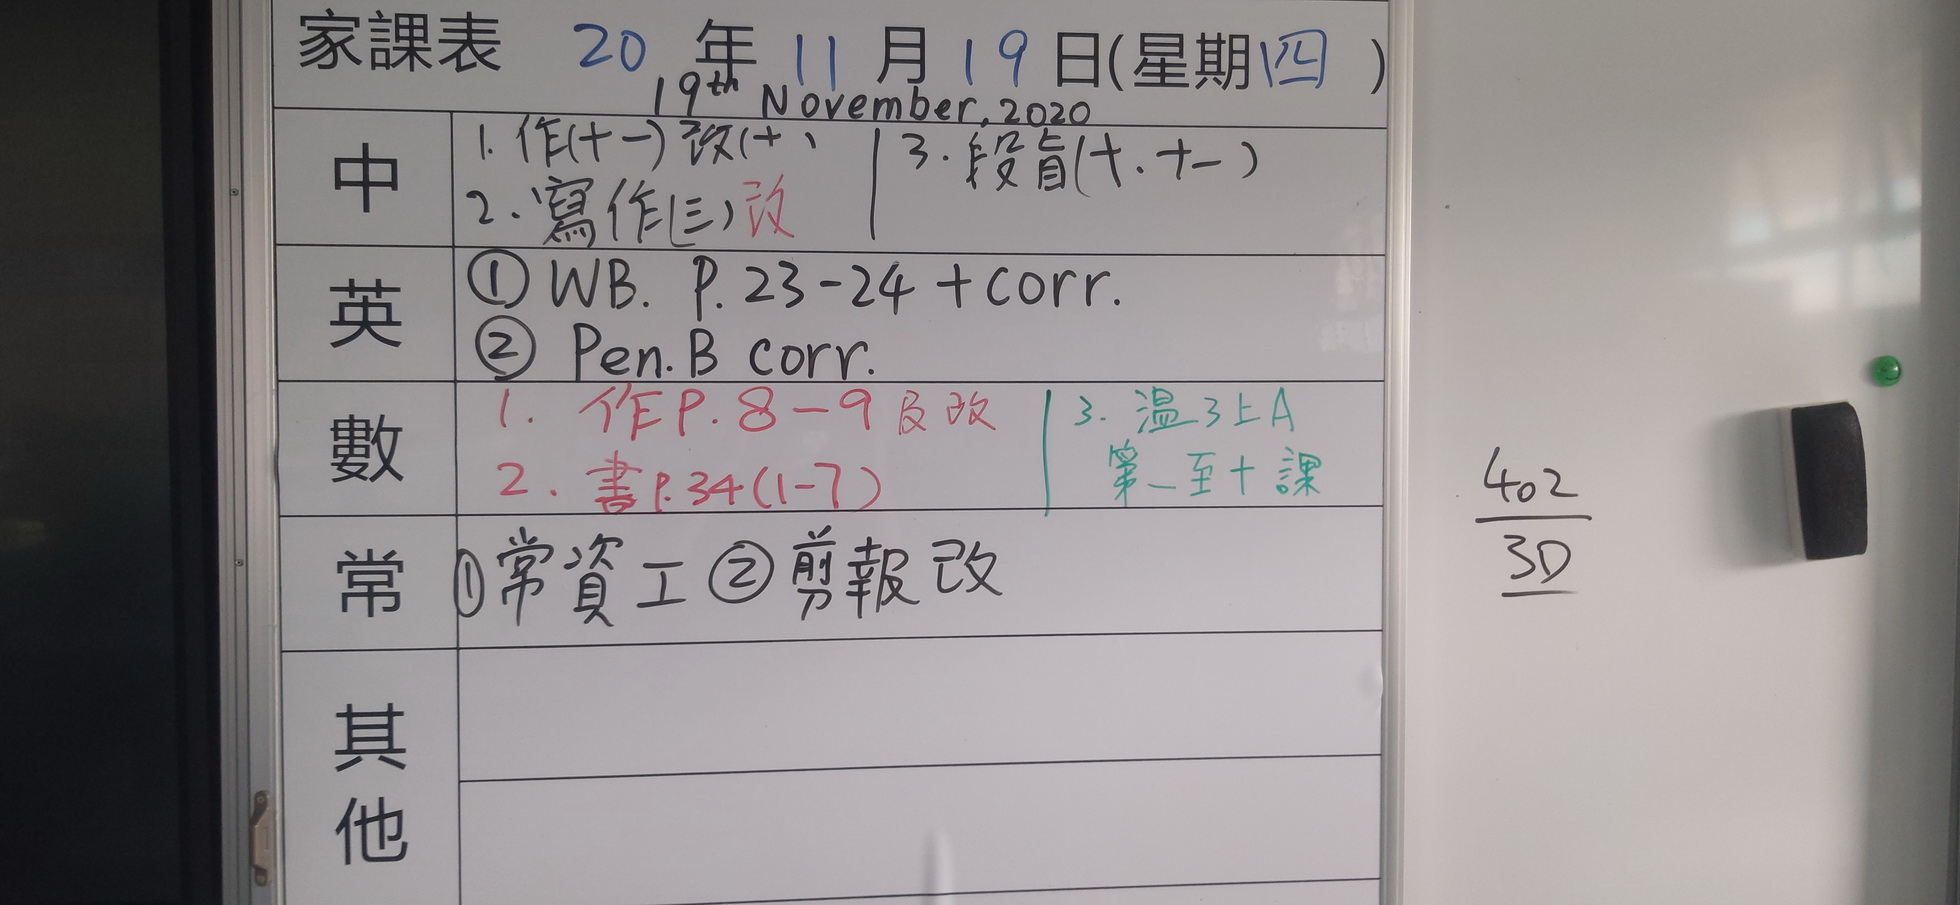 家課表 20 年 11 月 19 日(星期四 )
19th November, 2020
中
1. 作(十一) 改(十)
2. 寫作(三) 改
3. 段背(十.十一)
英
① WB. P. 23-24 + corr.
② Pen. B corr.
數
1. 作P. 8-9 及改
2. 書P.34(1-7)
3. 溫3上A
第一至十課
常
①常資工 ②剪報改
其他
402
3D